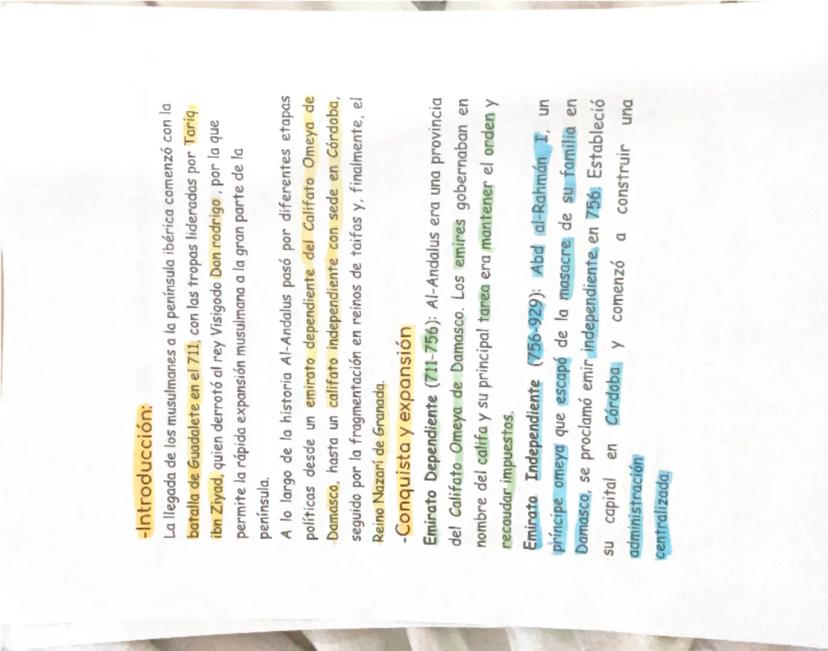 -Introducción:
La llegada de los musulmanes a la península ibérica comenzó con la
batalla de Guadalete en el 711, con las tropas lideradas por Tariq
ibn Ziyad, quien derrotó al rey Visigodo Don rodrigo , por la que
permite la rápida expansión musulmana a la gran parte de la
península.
A lo largo de la historia Al-Andalus pasó por diferentes etapas
políticas desde un emirato dependiente del Califato Omeya de
Damasco, hasta un califato independiente con sede en Córdoba,
seguido por la fragmentación en reinos de taifas y, finalmente, el
Reino Nazarí de Granada.
-Conquista y expansión
Emirato Dependiente (711-756): Al-Andalus era una provincia
del Califato Omeya de Damasco. Los emires gobernaban en
nombre del califa y su principal tarea era mantener el orden y
recaudar impuestos.
Emirato Independiente (756-929): Abd al-Rahmán I, un
príncipe omeya que escapó de la masacre de su familia en
Damasco, se proclamó emir independiente en 756. Estableció
su capital en Córdoba y comenzó a construir una
administración
centralizada.